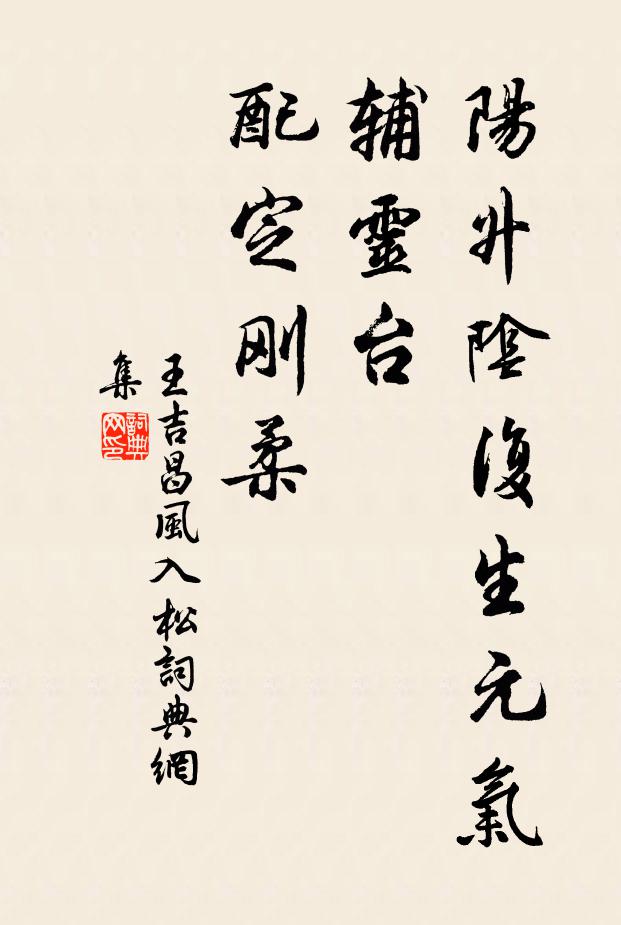 陽升陰復生元氣
輔靈台
配定刚柔
王吉昌風入松詞典網
集
詞典网印